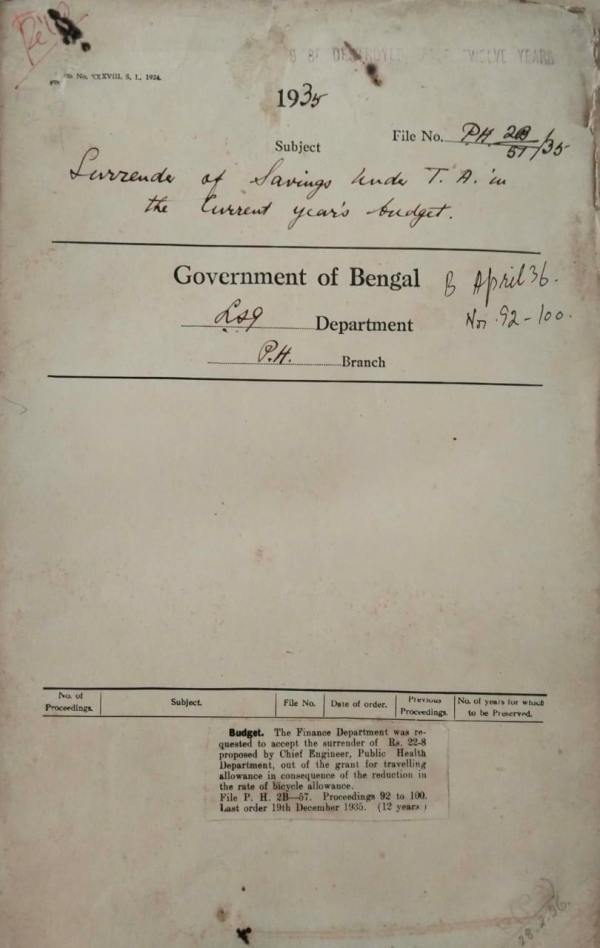 TO BE DESTROYED AFTER TWELVE YEARS
No. XXXVIII, S. I., 1924.
1935
File No. P.H. 2B/57/35
Subject
Surrender of Savings under T. A. in
the Current year's budget.
Government of Bengal
B April 36.
LSG Department
Nos. 92-100.
P.H. Branch
No. of Proceedings. Subject. File No. Date of order. Previous Proceedings. No. of years for which to be Preserved.
Budget. The Finance Department was re-
quested to accept the surrender of Rs. 22-8
proposed by Chief Engineer, Public Health
Department, out of the grant for travelling
allowance in consequence of the reduction in
the rate of bicycle allowance.
File P. H. 2B—57. Proceedings 92 to 100.
Last order 19th December 1935. (12 years)
28.2.36.